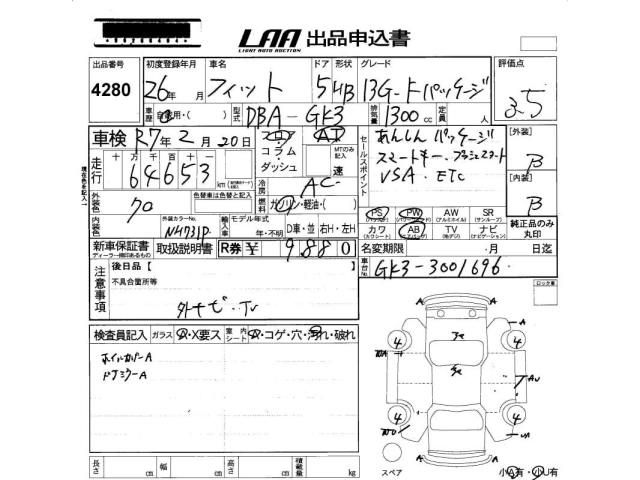 LAA 出品申込書
LIGHT AUTO AUCTION
出品番号 初度登録年月 車名 ドア 形状 グレード 評価点
4280 26年 月 フィット 5 HB 13G-Fパッケージ 3.5
車歴 自家用・( ) 型式 DBA-GK3 排気量 1300cc 定員 人
車検 R7年2月20日 フロア・コラム・ダッシュ AT セールスポイント あんしんパッケージ [外装] B
MTのみ記入 速 スマートキー プッシュスタート
走行 十万千百十一 64653 km VSA ETC [内装] B
冷房 AC
外装色 クロ 色替車は色替と記入 燃料 ガソリン・軽油・( )
PS (パワステ) PW (パワーウィンドウ) AW (アルミホイル) SR (サンルーフ) 純正品のみ丸印
内装色 外装カラーNo. NH731P 輸入車 モデル年式 年・不明 D車・並 右H・左H カワ (カワシート) AB (エアバッグ) TV (地デジ) ナビ (ナビゲーション)
新車保証書 取扱説明書 R券 ¥ 9880 名変期限 ・月 日迄
ディーラー捺印あるもの
車台No. GK3-3001696
注意事項 後日品【
不具合箇所等
外ナビ・TV
ロック車
検査員記入 ガラス A・X要ス 室内シート A・コゲ・穴・汚れ・破れ
ホイルカバーA
ドアミラーA
長さ cm 幅 cm 高さ cm 積載量 kg
スペア 小A有・小U有